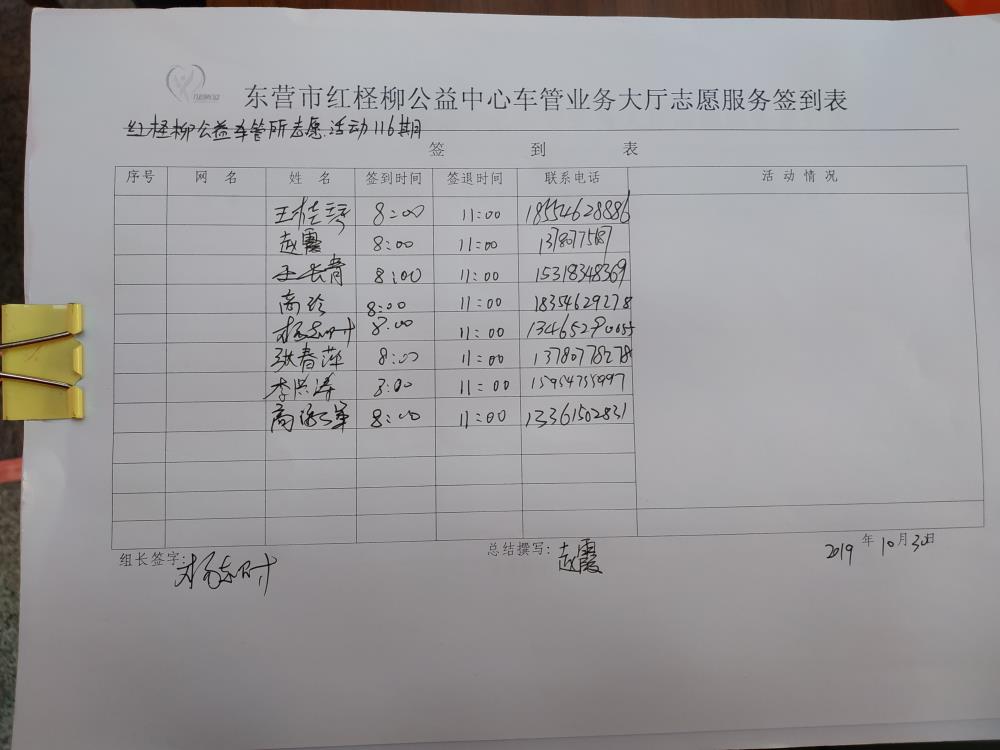 东营市红柽柳公益中心车管业务大厅志愿服务签到表
红柽柳公益车管所志愿活动116期
签 到 表
序号 网 名 姓 名 签到时间 签退时间 联系电话 活动情况
王桂琴 8:00 11:00 18554628886
赵霞 8:00 11:00
王长青 8:00 11:00 15318348369
高珍 8:00 11:00 18354629278
8:00 11:00 13465290055
张春萍 8:00 11:00 13780778278
李洪涛 8:00 11:00
8:00 11:00 13361502831
组长签字: 总结撰写: 赵霞 2019 年 10 月 30 日